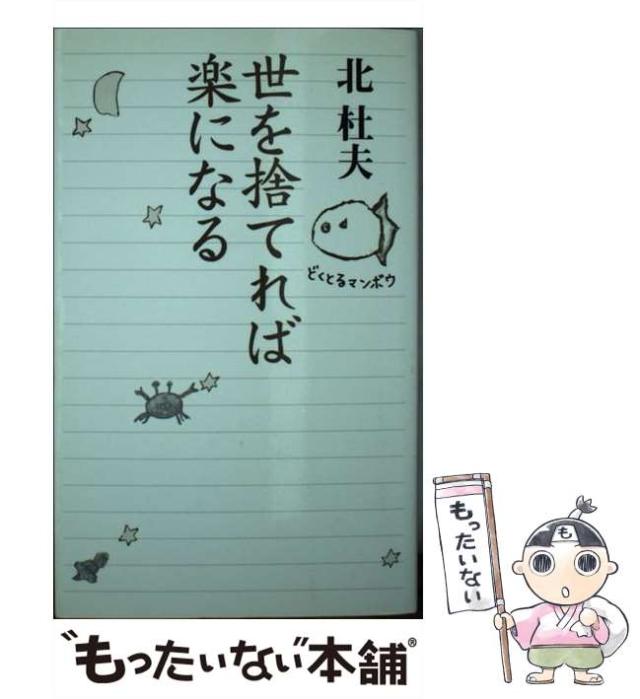 北 杜夫
どくとるマンボウ
世を捨てれば
楽になる
もったいない
も
"もったいない"本舗®